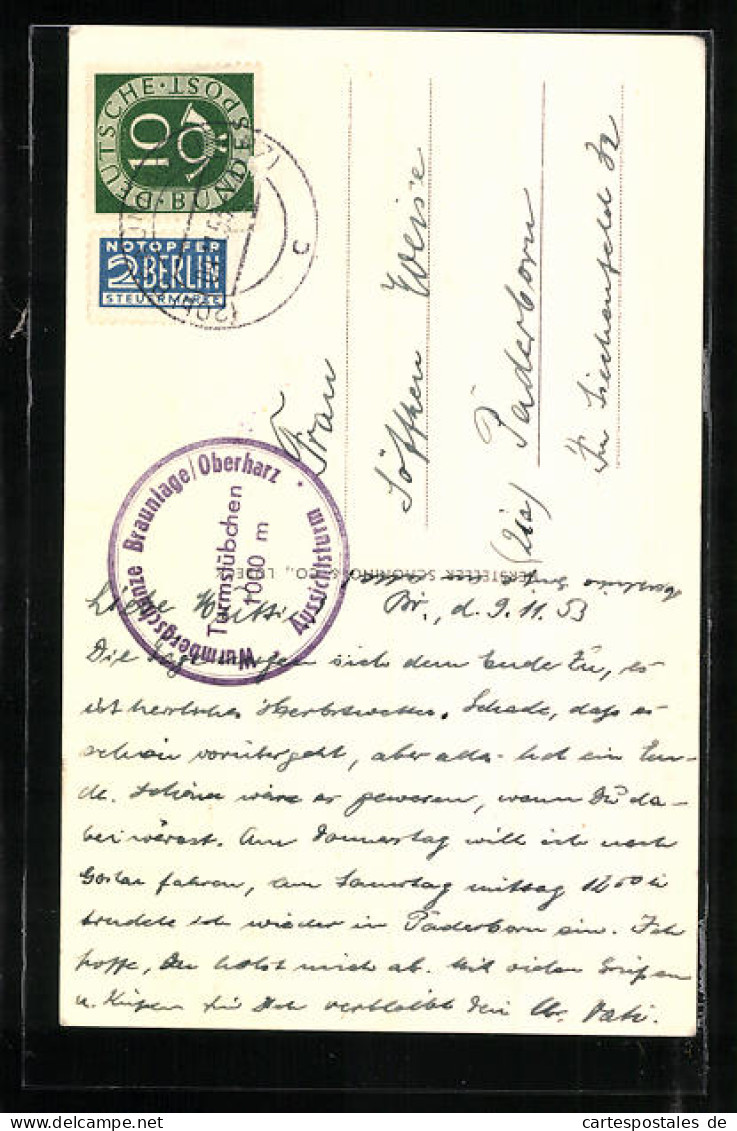 DEUTSCHE · BUNDESPOST ·
10
NOTOPFER
2 BERLIN
STEUERMARKE
c
Frau
Söffken Weise
(21a) Paderborn
Im Liechenfelde 32
Wurmbergschanze Braunlage/Oberharz · Aussichtsturm
Turmstübchen
1000 m
HERSTELLER SCHÖNING & CO., LÜBECK
Liebe Mutti! Br., d. 9.11.53
Die Tage neigen sich dem Ende zu, es
ist herrliches Herbstwetter. Schade, daß es
schon vorübergeht, aber alles hat ein En-
de. Schöner wäre es gewesen, wenn Du da-
bei wärest. Am Donnerstag will ich nach
Goslar fahren, am Samstag mittag 12
trudele ich wieder in Paderborn ein. Ich
hoffe, Du holst mich ab. Mit vielen Grüßen
u. Küssen für Dich verbleibt Dein lb. Vati.
cartespostales de